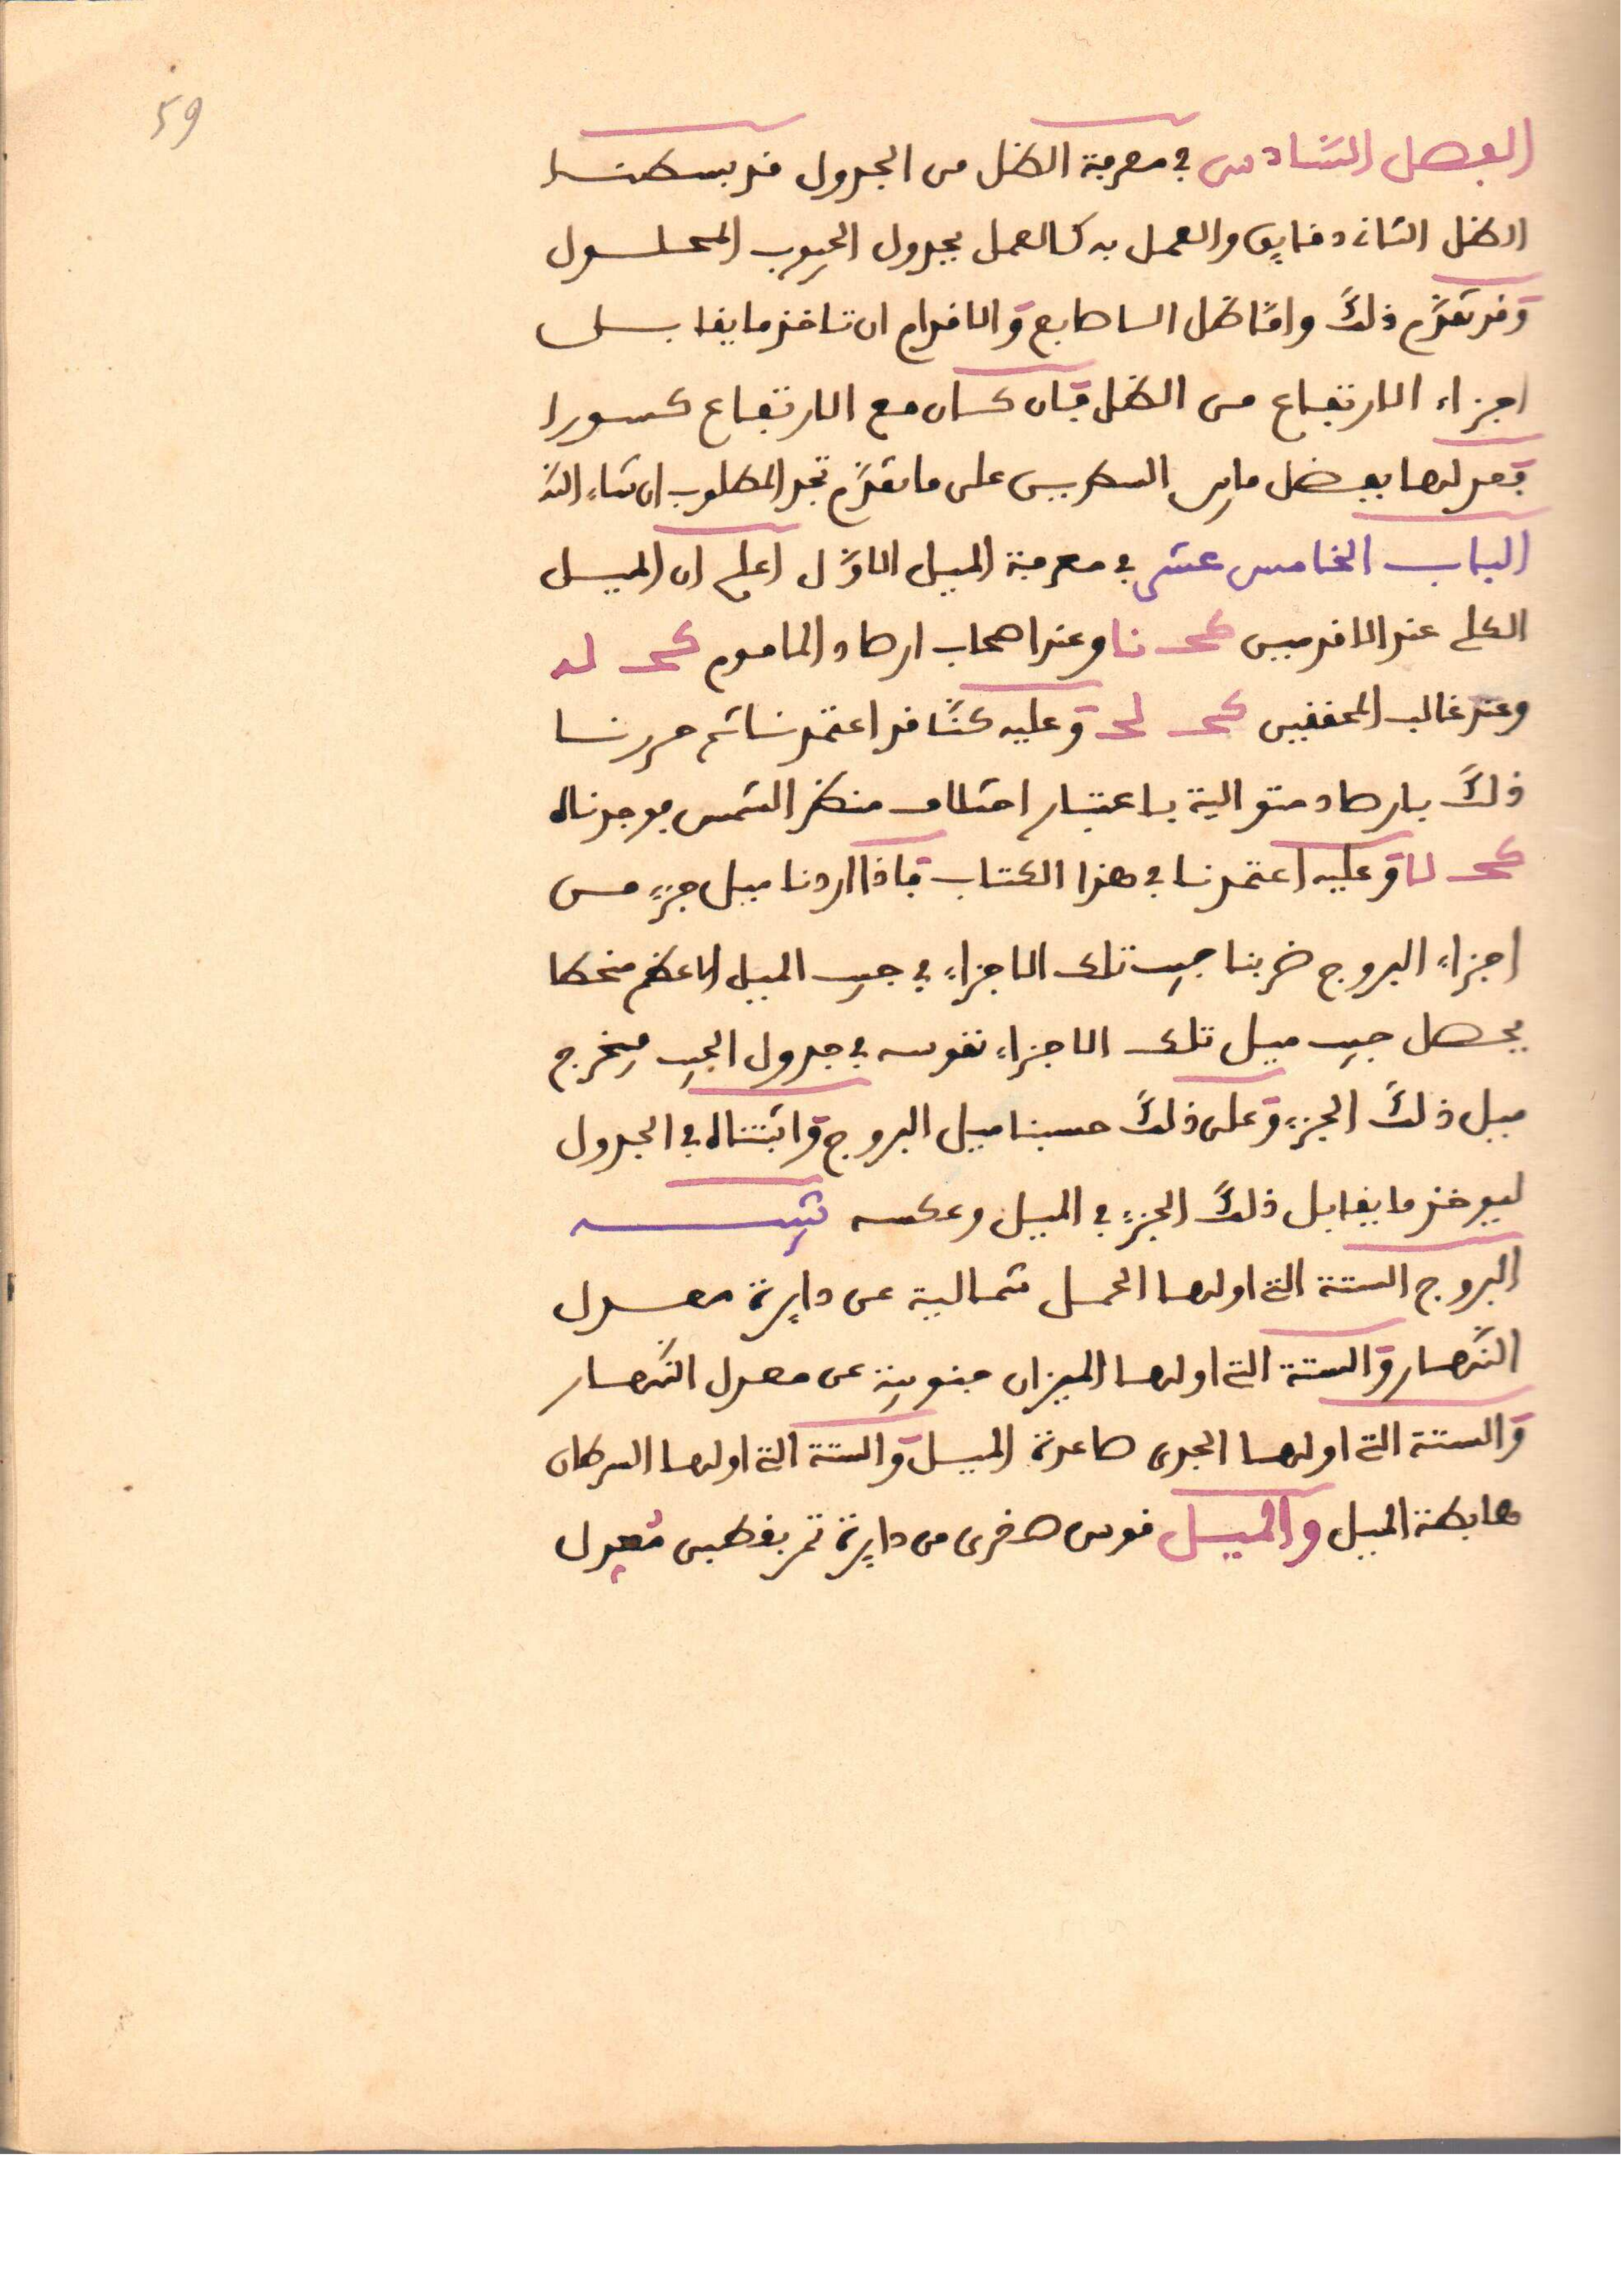 59
الفصل السّادس في معرفة الظل من الجدول قد بسطنا
الظل الثاني دقايق والعمل به كالعمل بجدول الجيوب المحلول
وَقد تقدّم ذلك وامّا ظل الاصابع وَالاقدام ان تاخذ ما يقابل
اجزاء الارتفاع من الظل فَان كان مع الارتفاع كسورا
فعدلها بفضل ما بين السطرين على ما تقدّم تجد المطلوب ان شاء الله
الباب الخامس عشر في معرفة الميل الاوّل اعلم ان الميل
الكلي عند الاقدمين كحـ نا وعند اصحاب ارصاد المامون كحـ لد
وعند غالب المحققين كحـ لحـ وَعليه كنّا قد اعتمدنا ثم حررنا
ذلك بارصاد متوالية باعتبار اختلاف منظر الشمس فوجدناه
كحـ لا وَعليه اعتمدنا في هذا الكتاب فَاذا اردنا ميل جزءٍ من
اجزاءِ البروج ضربنا جيب تلك الاجزاءِ في جيب الميل الاعظم منحطا
يحصل جيب ميل تلك الاجزاءِ نقوسه في جدول الجيب فيخرج
ميل ذلك الجزءِ وَعلى ذلك حسبنا ميل البروج وَاثبتناه في الجدول
ليوخذ ما يقابل ذلك الجزءِ في الميل وعكسه تنبيـه
البروج الستة التي اولها الحمل شمالية عن دايرة معدل
النّهار وَالستة التي اولها الميزان جنوبية عن معدل النّهار
وَالستة التي اولها الجدي صاعدة الميل وَالستة التي اولها السرطان
هابطة الميل والميل قوس صغرى من دايرة تمر بقطبي مُعدِل